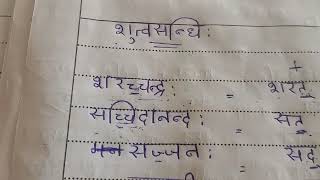 शुत्वसन्धि:
+
शरच्चन्द्र: = शरत्
सच्चिदानन्द: = सत्
सज्जन: = सद्